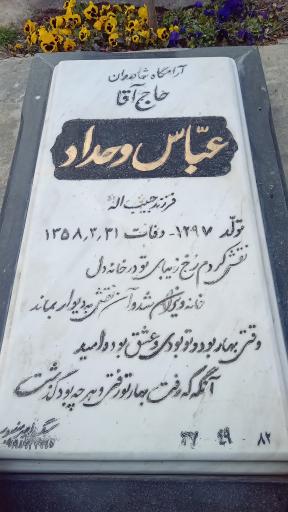 آرامگاه شادروان
حاج آقا
عبّاس وحداد
فرزند حبیب اله
تولّد ۱۲۹۷ - وفات ۱۳۵۸٫۳٫۳۱
نقش کردم رخ زیبای تو در خانه دل
خانه ویران شد و آن نقش به دیوار بماند
وقتی بهار بود و تو بودی و عشق بود و امید
آنگه که رفت بهار تو رفتی و هر چه بود گذشت
۸۲ - ۴۹ - ۳۷